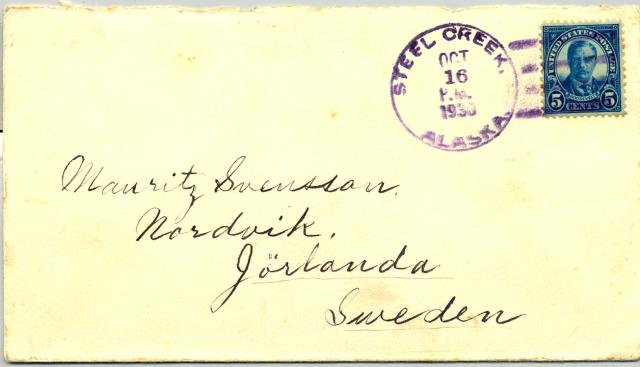 STEEL CREEK,
OCT
16
P.M.
1930
ALASKA.
UNITED STATES POSTAGE
ROOSEVELT
5 CENTS 5
Mauritz Svensson.
Nordvik.
Jörlanda
Sweden